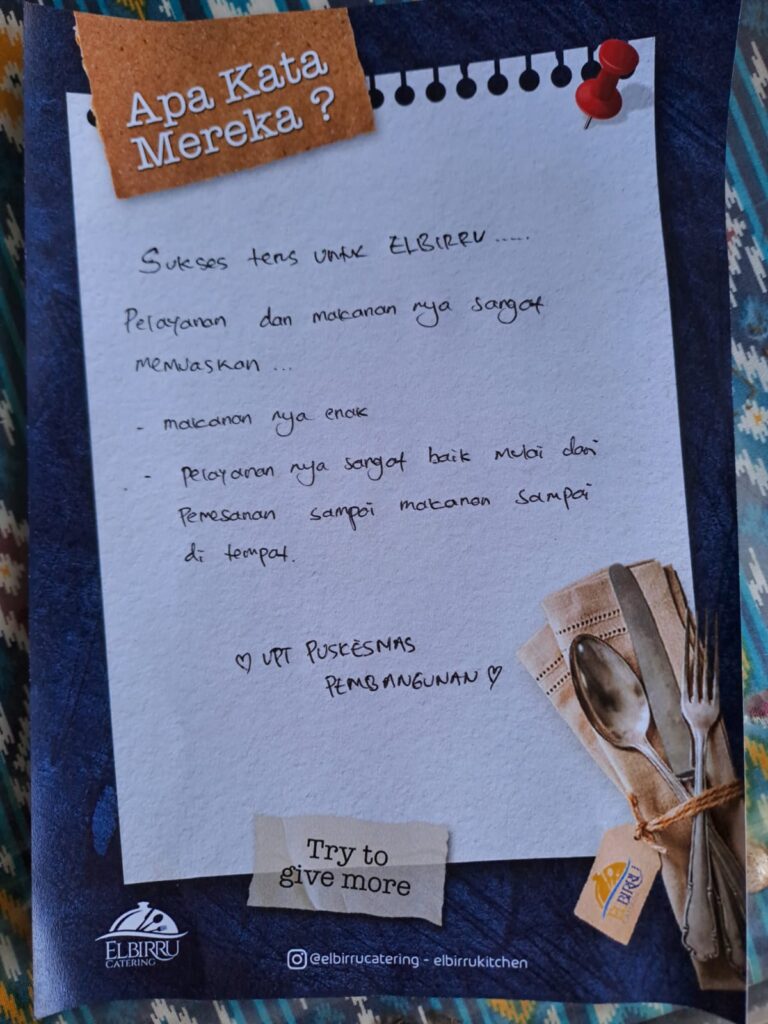 Apa Kata
Mereka ?
Sukses terus untuk ELBIRRU.....
Pelayanan dan makanan nya sangat
memuaskan...
- makanan nya enak
- pelayanan nya sangat baik mulai dari
Pemesanan sampai makanan sampai
di tempat.
♡ UPT PUSKESMAS
PEMBANGUNAN ♡
Try to
give more
ELBIRRU
ELBIRRU
CATERING
@elbirrucatering - elbirrukitchen